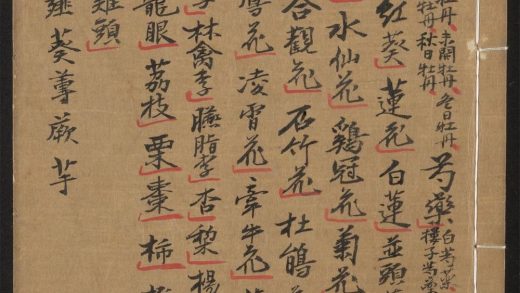 牡丹、未開牡丹、冬日牡丹
牡丹 秋日牡丹
芍藥、白芍藥
樓子芍藥
紅葵 蓮花 白蓮 並頭
水仙花 鷄冠花 菊花
合觀花 石竹花 杜鵑
花 凌霄花 牽牛花
林禽李 臙脂李 杏 梨 楊
龍眼 荔枝 栗 棗 柿
雞頭
薤 葵 蓴 蕨 芋